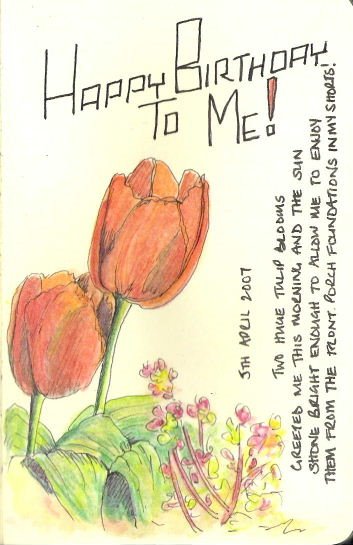 HAPPY BIRTHDAY
TO ME!
5TH APRIL 2007
TWO HUGE TULIP BLOOMS
GREETED ME THIS MORNING AND THE SUN
SHONE BRIGHT ENOUGH TO ALLOW ME TO ENJOY
THEM FROM THE FRONT PORCH FOUNDATIONS IN MY SHORTS!